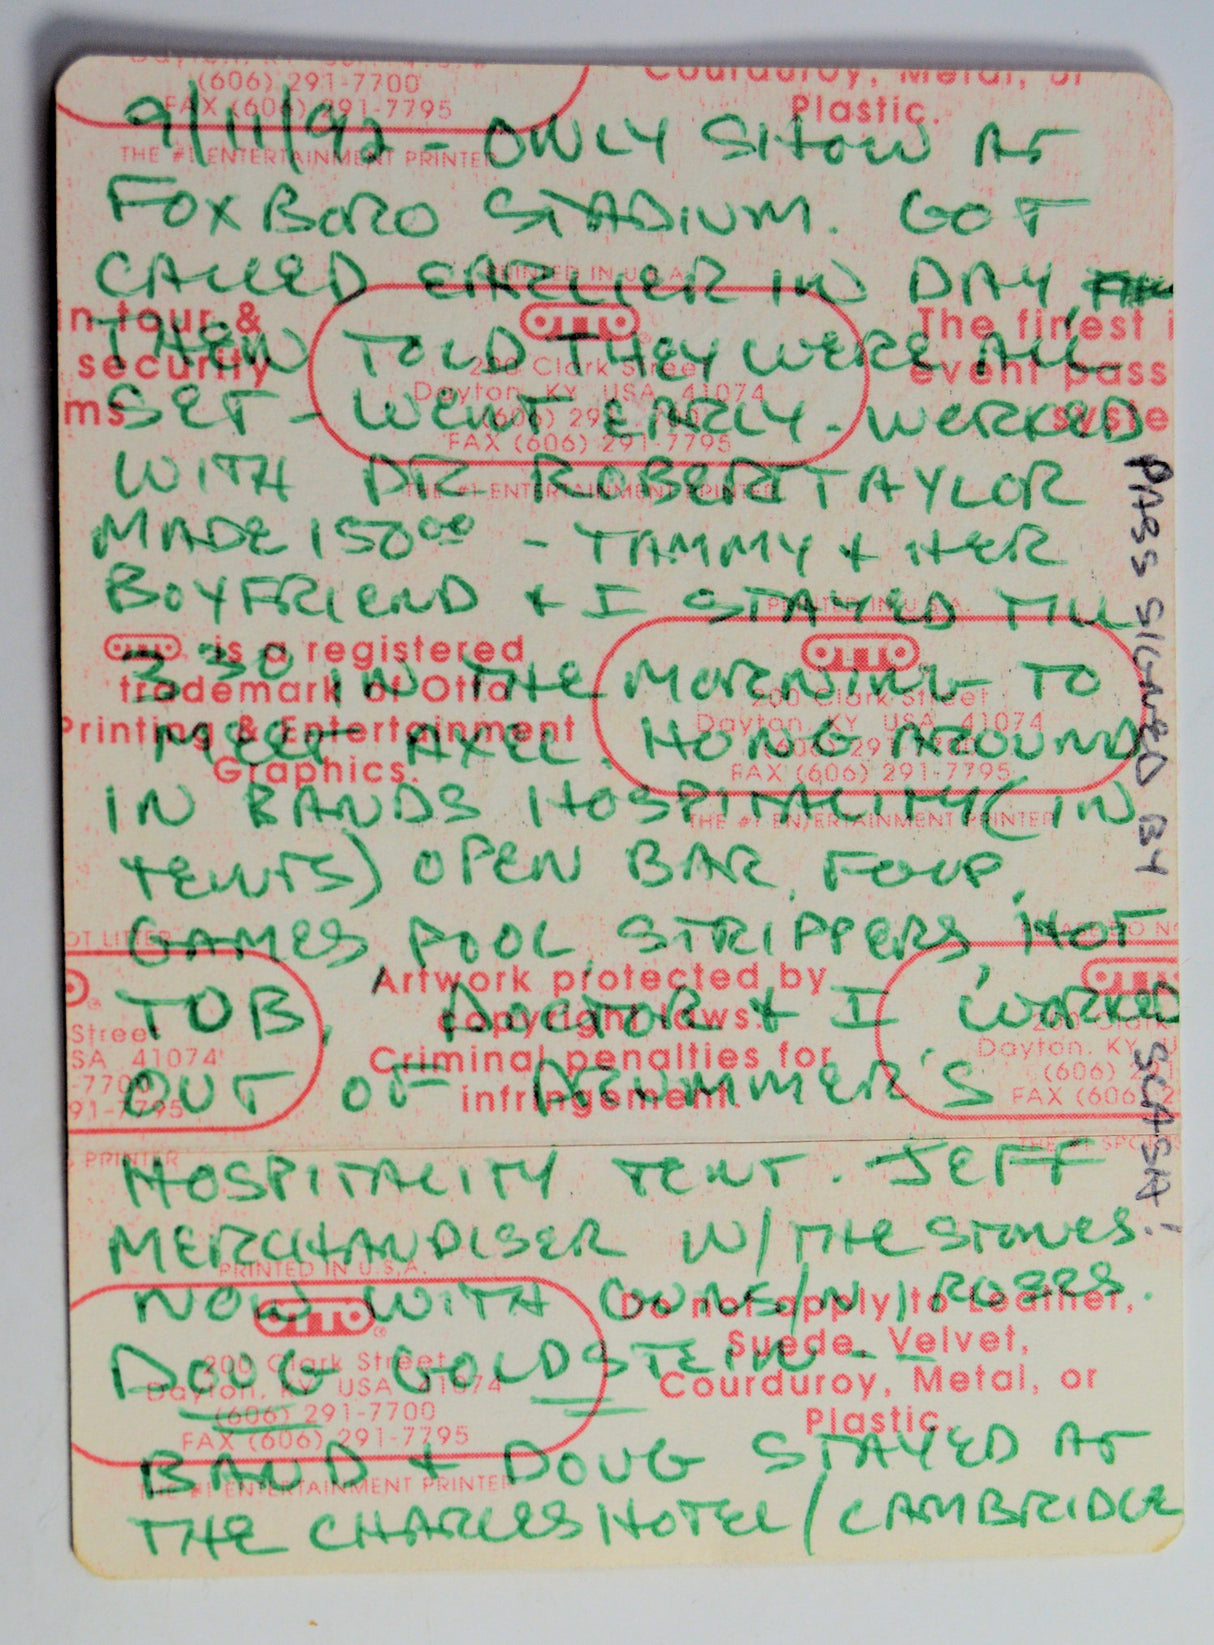 9/11/92 - ONLY SHOW AT
FOXBORO STADIUM. GOT
CALLED EARLIER IN DAY,
THEN TOLD THEY WERE ALL
SET - WENT EARLY - WORKED
WITH DR. ROBERT TAYLOR
MADE 150⁰⁰ - TAMMY + HER
BOYFRIEND + I STAYED TILL
3 30 IN THE MORNING TO
MEET AXEL. HONG AROUND
IN BANDS HOSPITALITY (IN
TENTS) OPEN BAR, FOUP,
GAMES, POOL, STRIPPERS, HOT
TUB. DOCTOR + I WORKED
OUT OF DRUMMER'S
HOSPITALITY TENT. JEFF
MERCHANDISER W/THE STONES.
NOW WITH GUNS/N/ROSES.
DOUG GOLDSTEIN - -
BAND + DOUG STAYED AT
THE CHARLES HOTEL/CAMBRIDGE
PASS SIGNED BY SLASH!
(606) 291-7700
FAX (606) 291-7795
THE #1 ENTERTAINMENT PRINTER
Courduroy, Metal, or
Plastic.
PRINTED IN U.S.A.
OTTO®
200 Clark Street
Dayton, KY USA 41074
(606) 291-7700
FAX (606) 291-7795
THE #1 ENTERTAINMENT PRINTER
in tour &
security
The finest i
event pass
syste
OTTO is a registered
trademark of Otto
Printing & Entertainment
Graphics.
PRINTED IN U.S.A.
OTTO
200 Clark Street
Dayton, KY USA 41074
(606) 291-7700
FAX (606) 291-7795
THE #1 ENTERTAINMENT PRINTER
OT LITTER
Street
SA 41074
-7700
91-7795
S PRINTER
Artwork protected by
copyright laws.
Criminal penalties for
infringement.
OTTO
200 Clark
Dayton, KY U
(606) 291
FAX (606) 2
THE #1 SPORTS
PRINTED IN U.S.A.
OTTO®
200 Clark Street
Dayton, KY USA 41074
(606) 291-7700
FAX (606) 291-7795
THE #1 ENTERTAINMENT PRINTER
Do not apply to Leather,
Suede, Velvet,
Courduroy, Metal, or
Plastic.